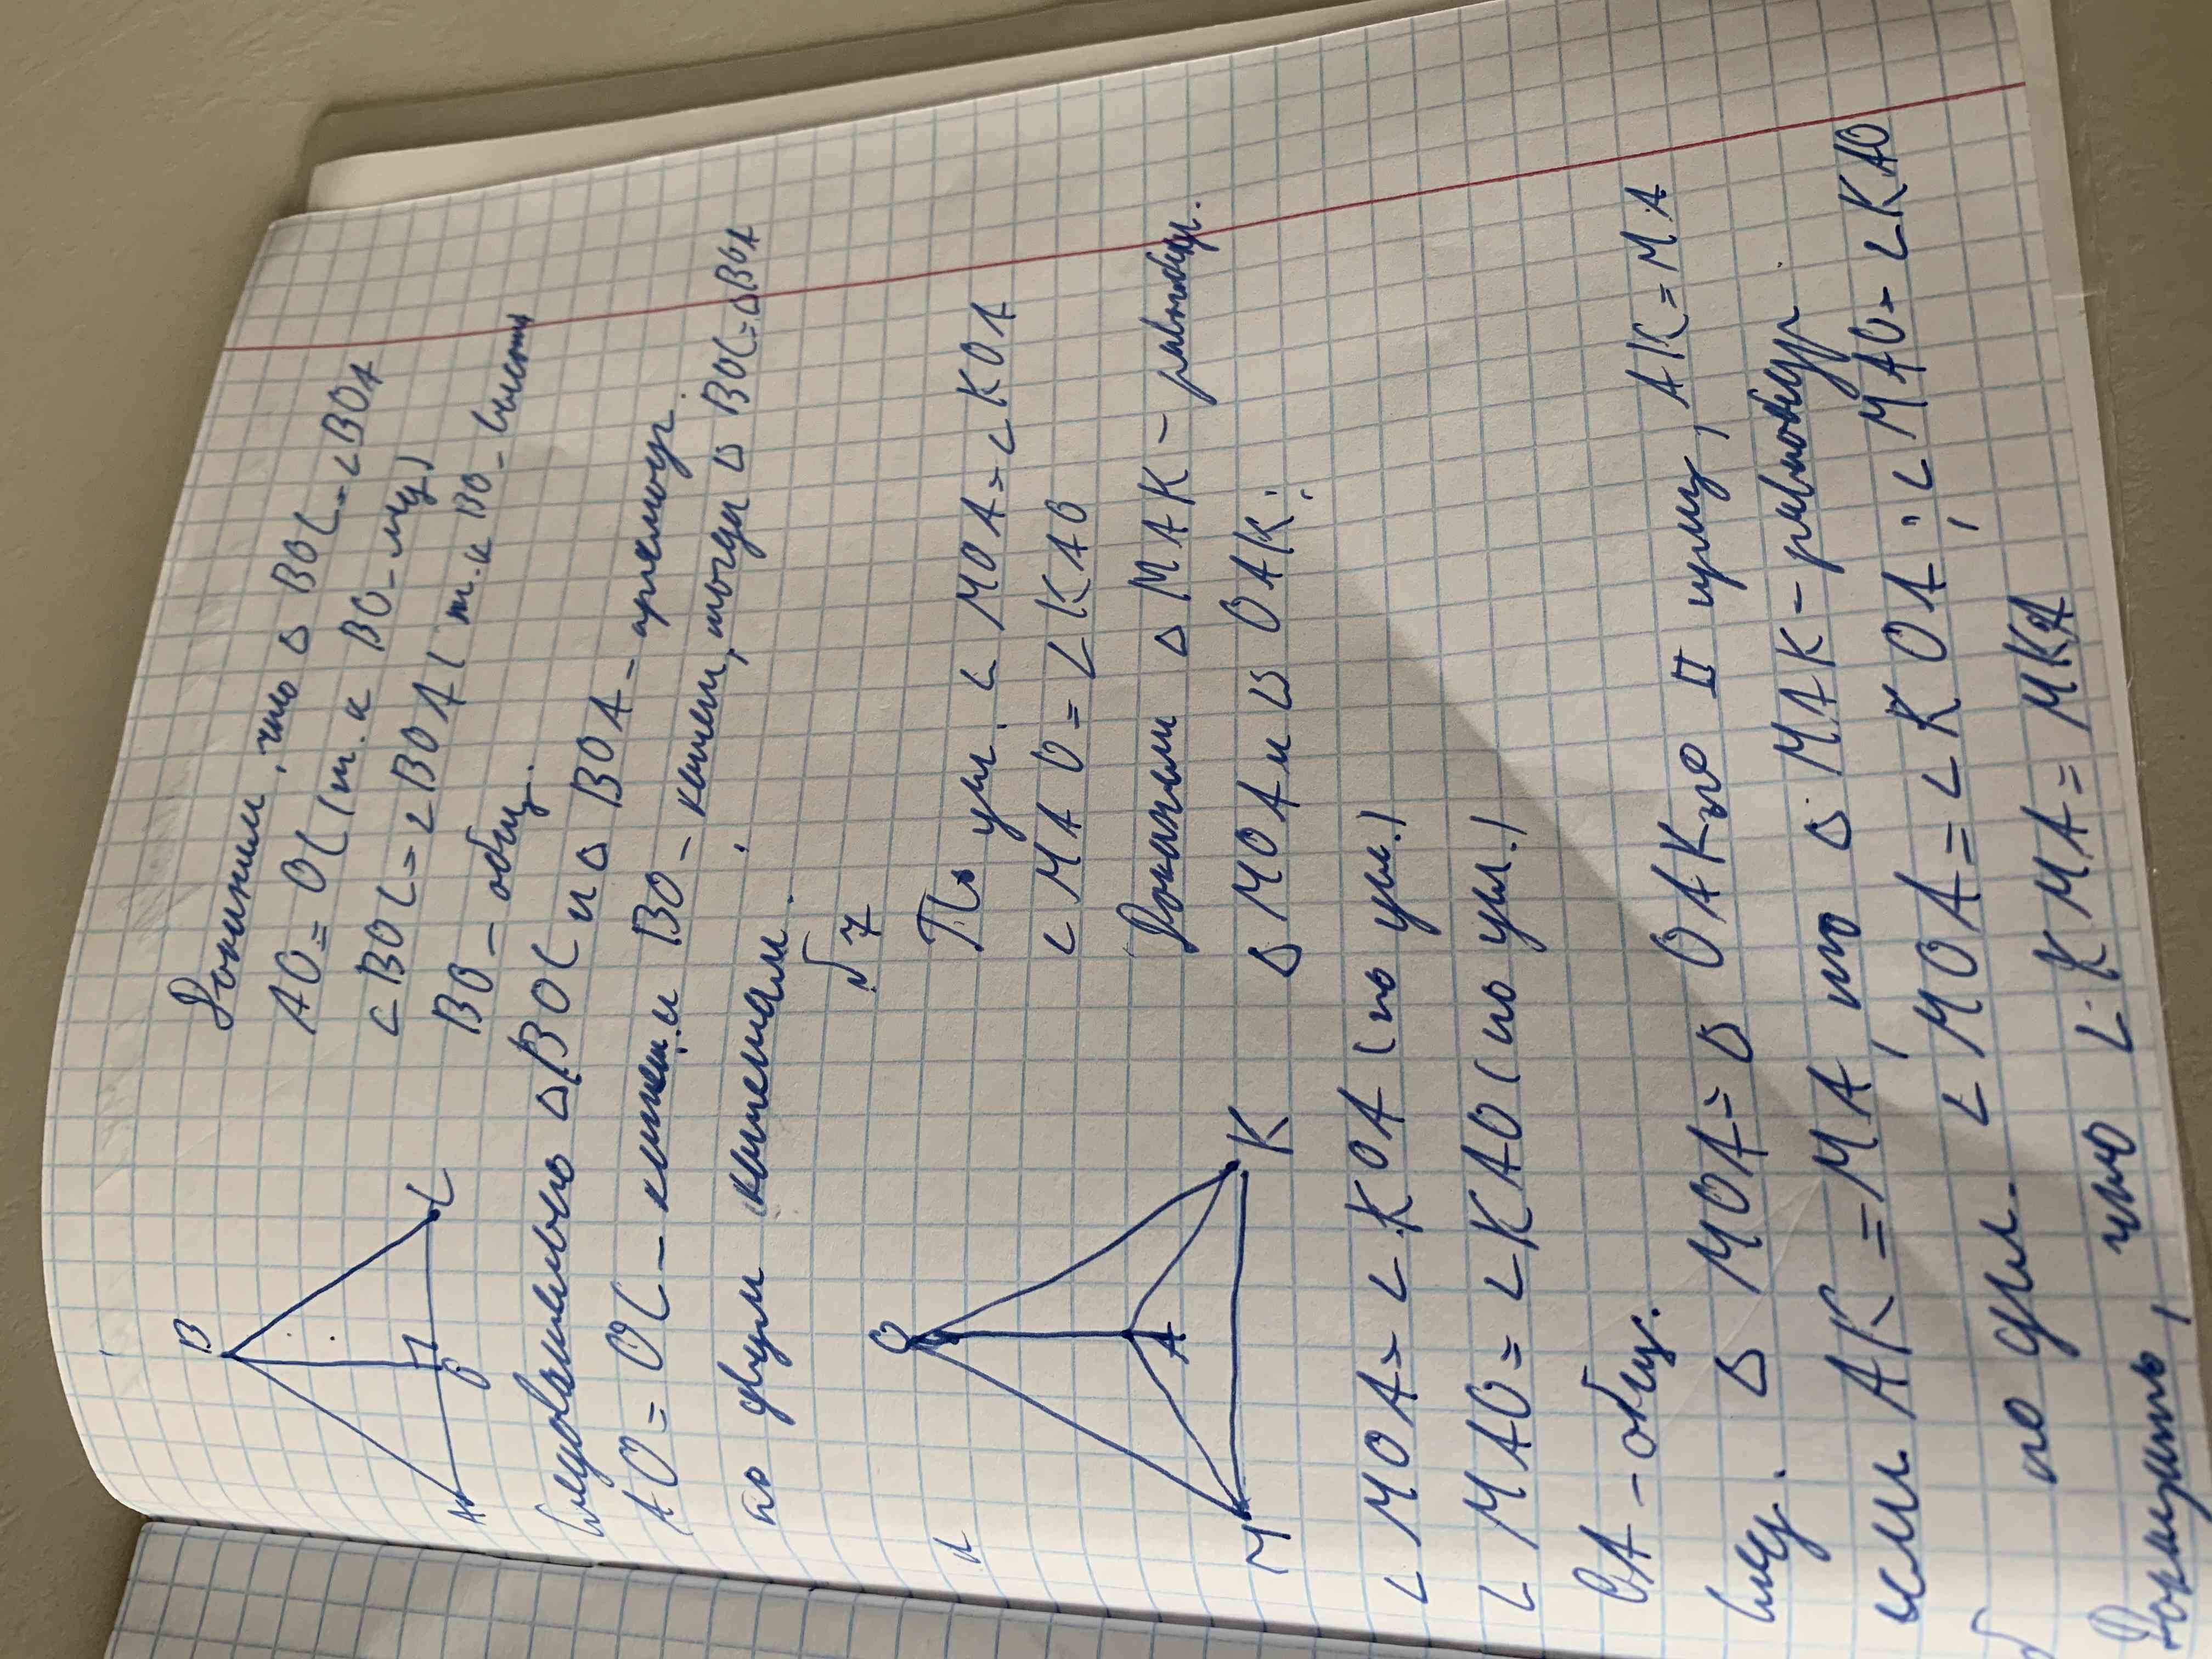 B
A
O
C
Докажем, что △ BOC = ∠BOA
AO = OC (т.к BO - мед)
∠BOC = ∠BOA (т.к BO - высота
BO - общ.
Следовательно △BOC и △ BOA - прямоуг.
AO = OC - катет и BO - катет, тогда △ BOC = △BOA
по двум катетам.
№7
O
A
M
K
По усл. ∠ MOA = ∠ KOA
∠ MAO = ∠ KAO
Докажем △ MAK - равнобедр.
△ MOA и △ OAK:
∠ MOA = ∠ KOA (по усл.)
∠ MAO = ∠ KAO (по усл.)
OA - общ.
След. △ MOA = △ OAK по II призн, AK = MA
если AK = MA, то △ MAK - равнобедр.
по усл. ∠ MOA = ∠ KOA; ∠ MAO = ∠ KAO
Доказать, что ∠ KMA = MKA